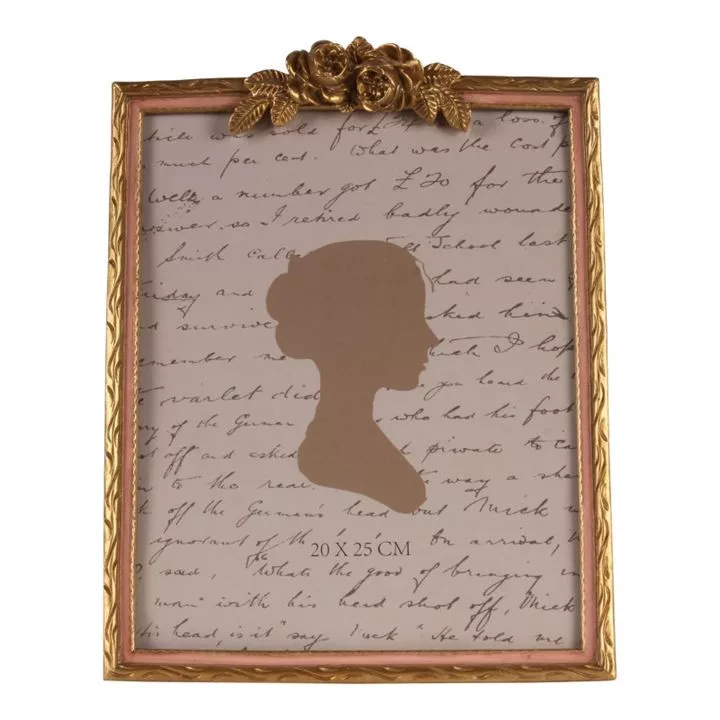 was sold for £ a loss. of
much per cent. What was the cost p
Well, a number got £20 for the
so I retired badly wounde
Smith calle School last
day and had seen
d survive ked him
member me I hop
varlet did you heard the
ry of the German who had his foot
off and asked private to ca
to the rear. way a she
k off the German's head but Mick
ignorant of th On arrival,
20 X 25 CM
said, "Whats the good of bringing in
man" with his head shot off, Mick
his head, is it" say Mick "He told me